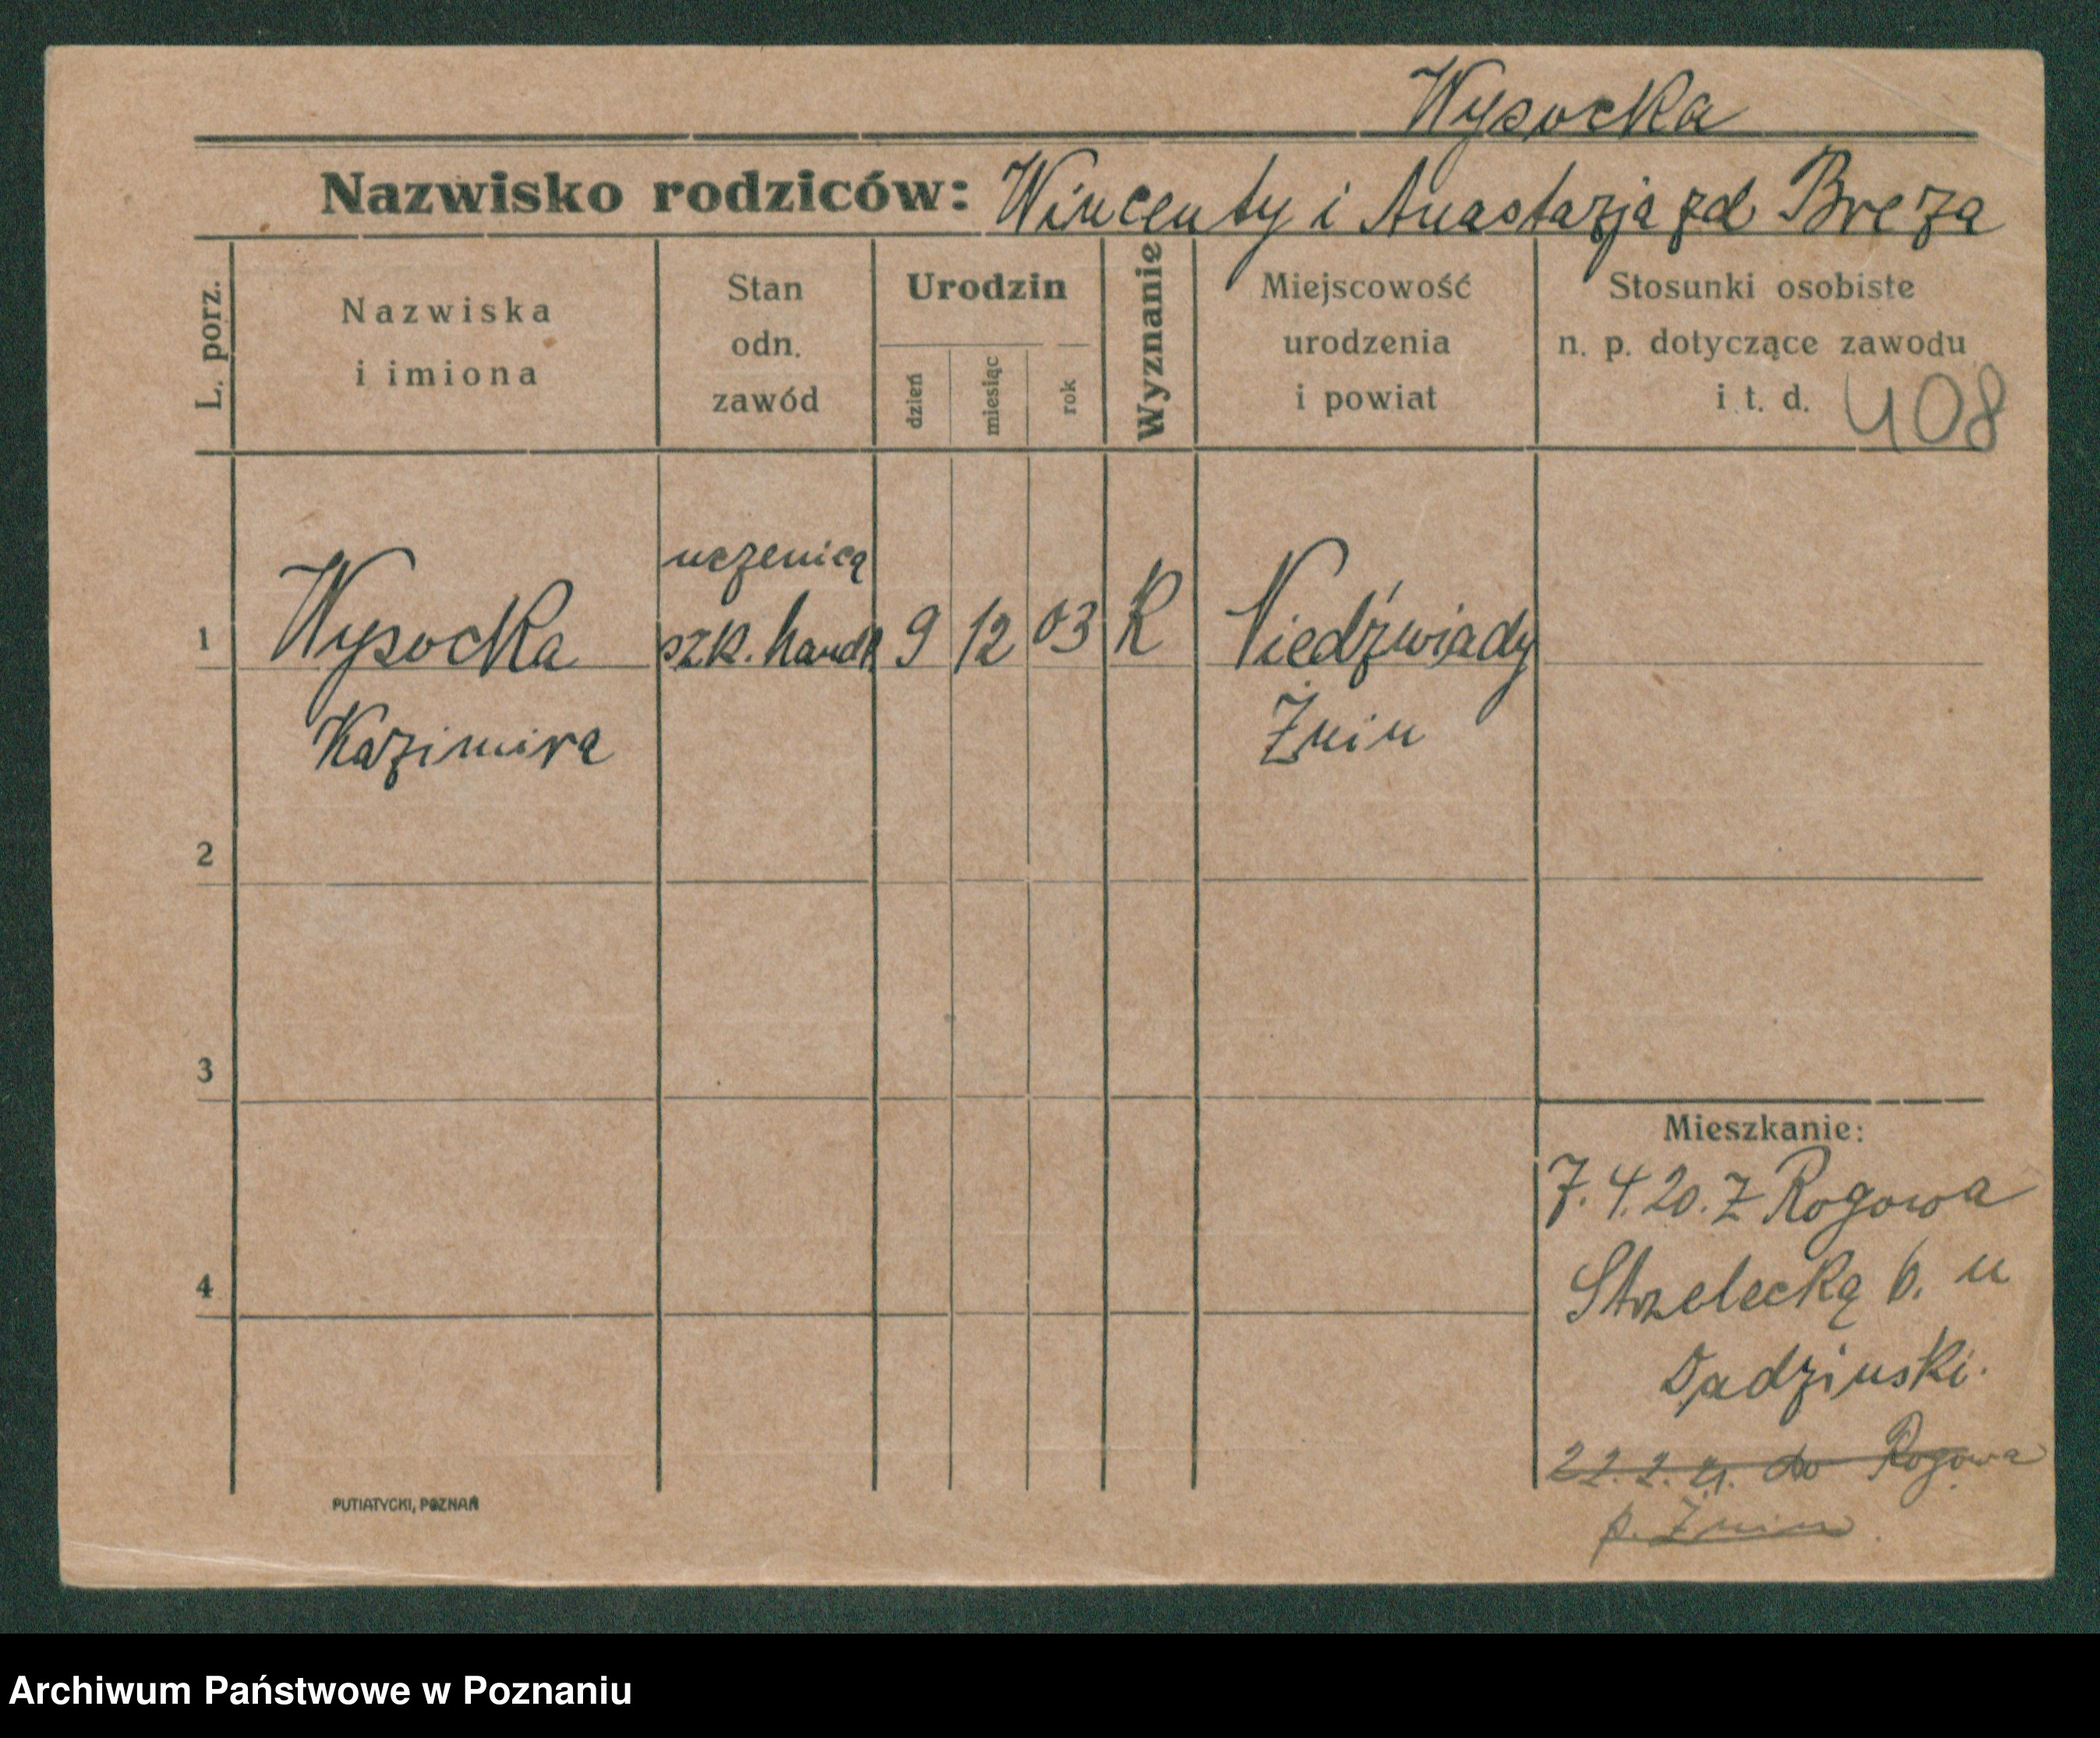 Wysocka
Nazwisko rodziców: Wincenty i Anastazja zd Breza
L. porz.
Nazwiska
i imiona
Stan
odn.
zawód
Urodzin
dzień
miesiąc
rok
Wyznanie
Miejscowość
urodzenia
i powiat
Stosunki osobiste
n. p. dotyczące zawodu
i t. d.
408
uczenicą
1 Wysocka szk. handl. 9 12 03 K Niedźwiady
Kazimira Żnin
2
3
4
Mieszkanie:
7.4.20. Z Rogowa
Strzelecką 6. u
Dadziński.
22.2.21. do Rogowa
p. Żnin
PUTIATYCKI, POZNAŃ
Archiwum Państwowe w Poznaniu